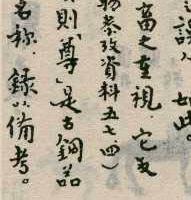 如此
富之重視．它
物參攷資料五七四）
則「尊」是古銅器
名称．錄以備考。